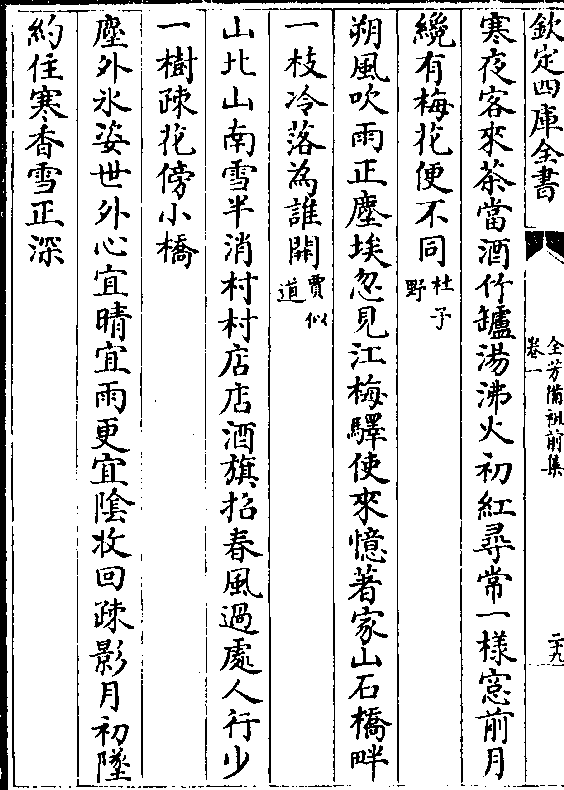 欽定四庫全書
全芳備祖前集
卷一
二十九
寒夜客來茶當酒竹罏湯沸火初紅尋常一樣窓前月
纔有梅花便不同杜子野
朔風吹雨正塵埃忽見江梅驛使來憶著家山石橋畔
一枝冷落為誰開賈似道
山北山南雪半消村村店店酒旗招春風過處人行少
一樹疎花傍小橋
塵外氷姿世外心宜晴宜雨更宜陰收回疎影月初墜
約住寒香雪正深